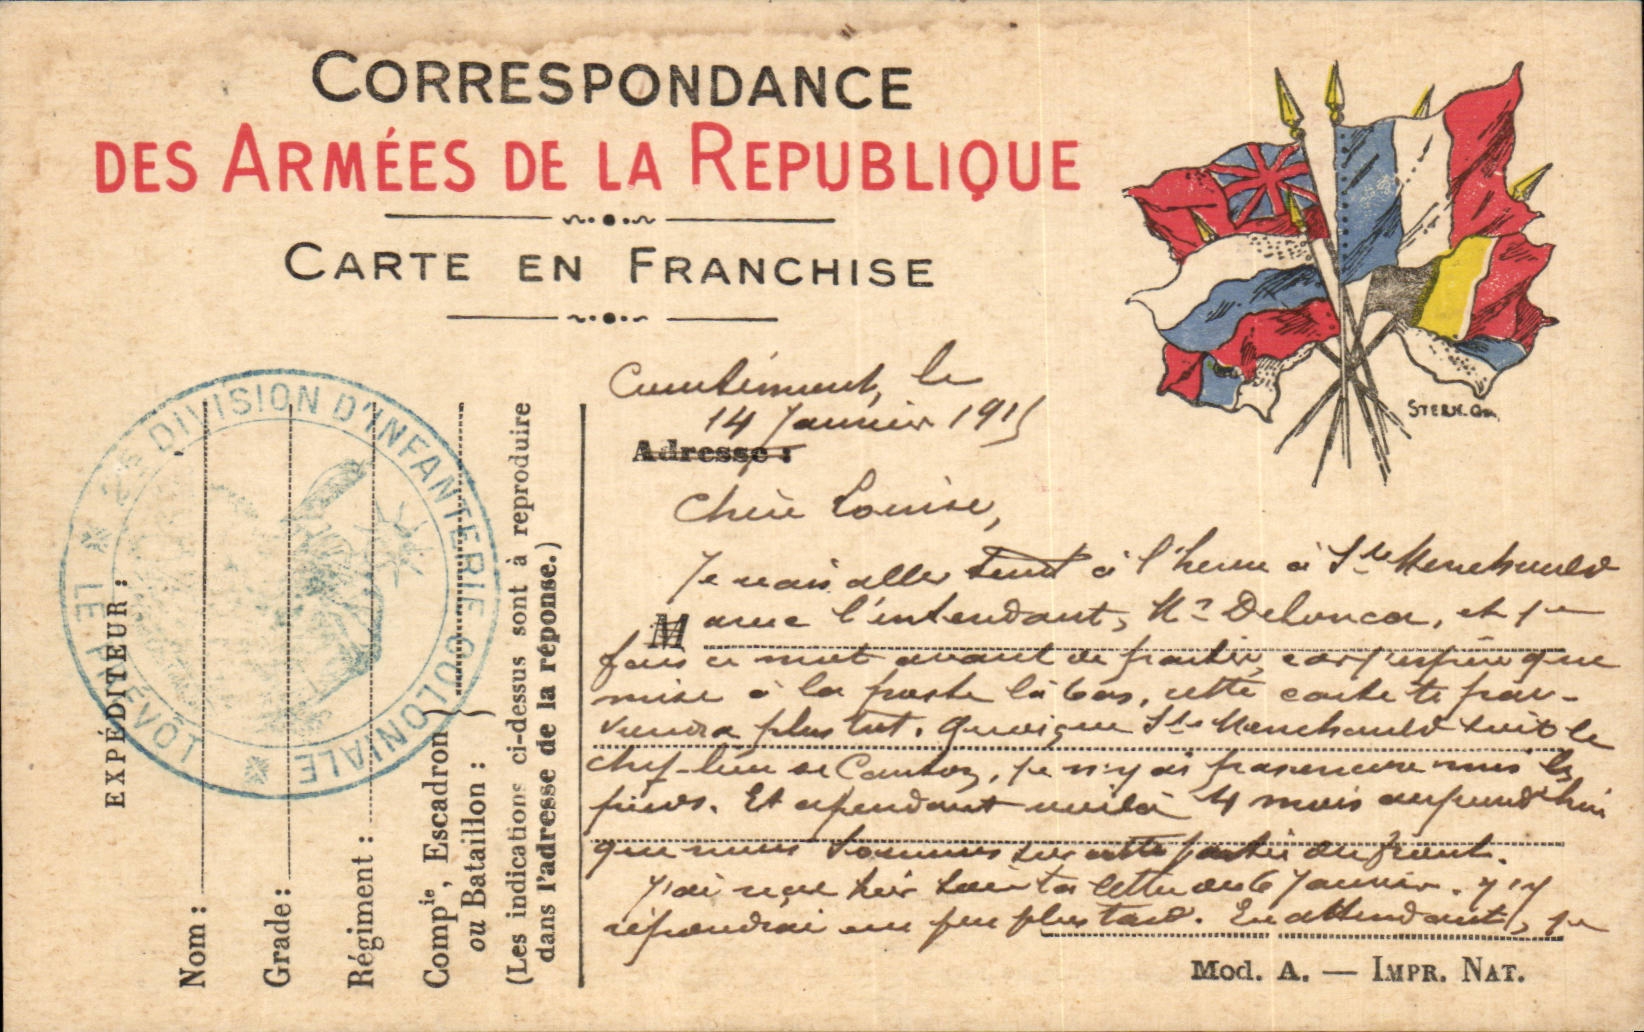 CORRESPONDANCE
DES ARMÉES DE LA REPUBLIQUE
CARTE EN FRANCHISE
STERN. Gr.
2e DIVISION D'INFANTERIE COLONIALE
LE PRÉVÔT
EXPÉDITEUR :
Nom :
Grade :
Régiment :
Compie, Escadron
ou Bataillon :
(Les indications ci-dessus sont à reproduire
dans l'adresse de la réponse.)
le
14 Janvier 1915
Adresse :
Chère Louise,
Je vais aller tout à l'heure à Ste Menehould
M avec l'intendant, Mr Deloncor, et je
fais ce mot avant de partir, car j'espère que
mise à la poste là bas, cette carte te par-
viendra plus tôt. Quoique Ste Menehould soit le
chef-lieu de Canton, je n'y ai pas encore mis les
pieds. Et cependant voilà 4 mois aujourd'hui
que nous sommes sur cette partie du front.
J'ai reçu hier soir ta lettre du 6 Janvier. J'y
répondrai un peu plus tard. En attendant, je
Mod. A. — IMPR. NAT.